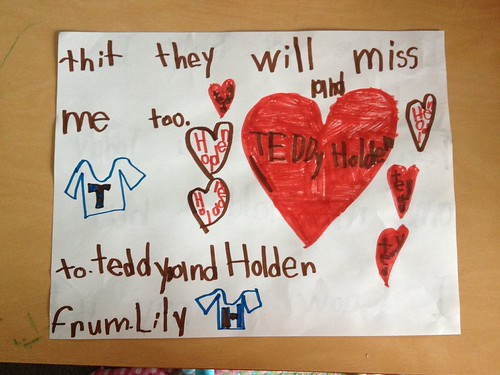 thit they will miss
me too.
and
TEDDy Holden
Holden
Holden
T
to. teddy and Holden
frum. Lily
H